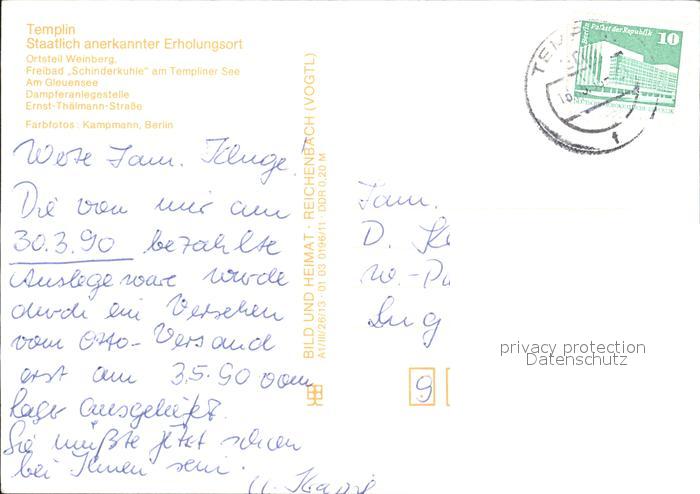 Templin
Staatlich anerkannter Erholungsort
Ortsteil Weinberg,
Freibad „Schinderkuhle" am Templiner See
Am Gleuensee
Dampferanlegestelle
Ernst-Thälmann-Straße
Farbfotos: Kampmann, Berlin
Werte Fam. Kluge!
Die von mir am
30.3.90 bezahlte
Auslegeware wurde
durch ein Versehen
vom Otto-Versand
erst am 3.5.90 vom
Lager ausgeliefert.
Sie müßte jetzt schon
bei Ihnen sein.
BILD UND HEIMAT · REICHENBACH (VOGTL)
A1/III/26/13 · 01 03 0196/11 · DDR 0,20 M
Berlin Palast der Republik
10
Fam.
D.
9
privacy protection
Datenschutz